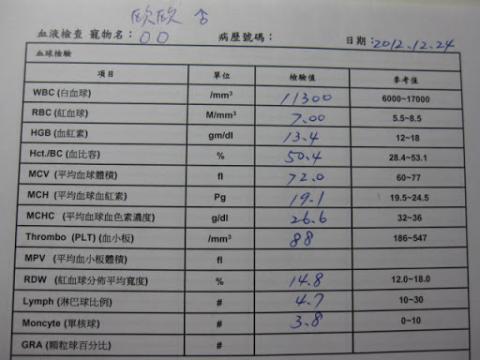 欧欧 杏
血液檢查 寵物名: OO 病歷號碼: 日期:2012.12.24
血球檢驗
項目 單位 檢驗值 參考值
WBC (白血球) /mm³ 11300 6000~17000
RBC (紅血球) M/mm³ 7.00 5.5~8.5
HGB (血紅素) gm/dl 13.4 12~18
Hct./BC (血比容) % 50.4 28.4~53.1
MCV (平均血球體積) fl 72.0 60~77
MCH (平均血球血紅素) Pg 19.1 19.5~24.5
MCHC (平均血球血色素濃度) g/dl 26.6 32~36
Thrombo (PLT) (血小板) /mm³ 88 186~547
MPV (平均血小板體積) fl
RDW (紅血球分佈平均寬度) % 14.8 12.0~18.0
Lymph (淋巴球比例) # 4.7 10~30
Moncyte (單核球) # 3.8 0~10
GRA (顆粒球百分比) #